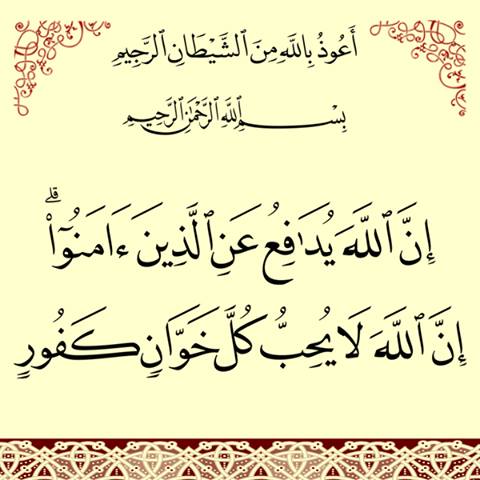 أَعُوذُ بِٱللَّهِ مِنَ ٱلشَّيْطَانِ ٱلرَّجِيمِ
بِسْمِ ٱللَّهِ ٱلرَّحْمَٰنِ ٱلرَّحِيمِ
إِنَّ ٱللَّهَ يُدَٰفِعُ عَنِ ٱلَّذِينَ ءَامَنُوٓا۟ ۗ
إِنَّ ٱللَّهَ لَا يُحِبُّ كُلَّ خَوَّانٍ كَفُورٍ